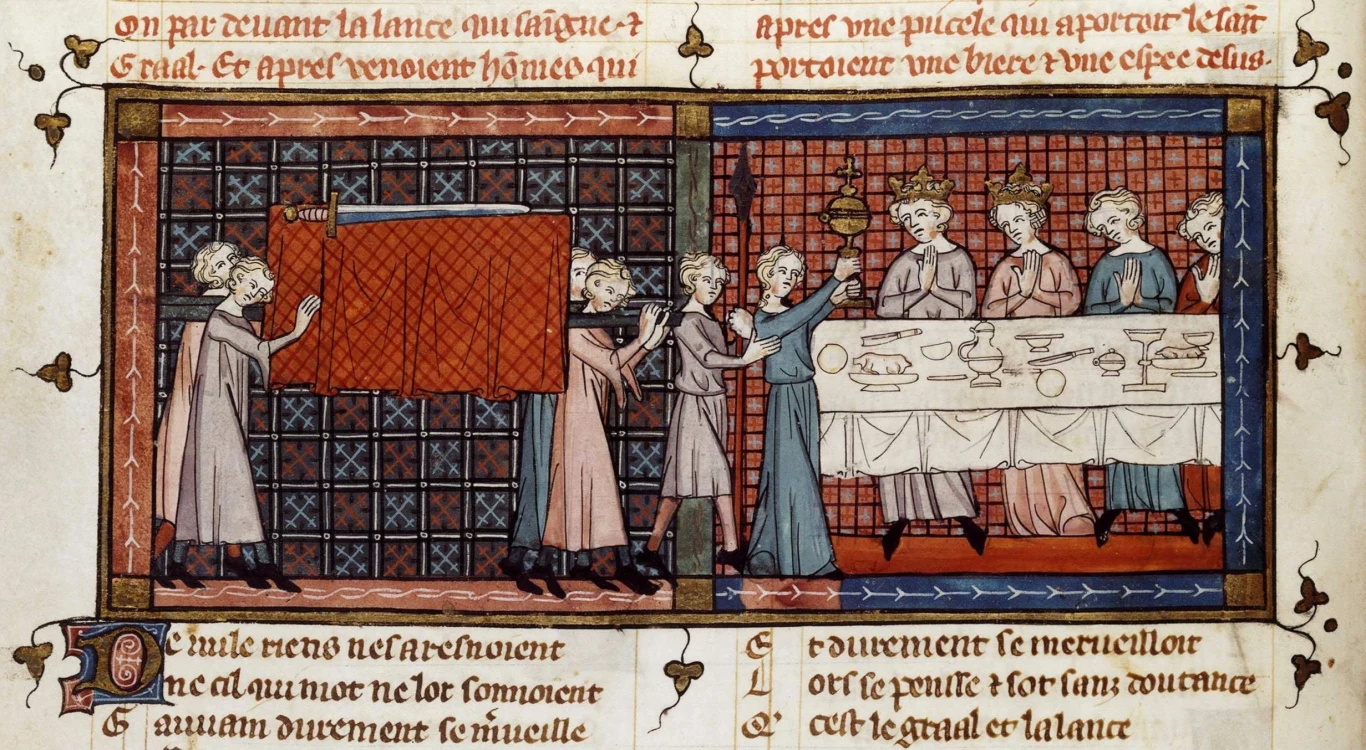 on par deuant la lance qui saĩgne ⁊ apres vne pucele qui aportoit le sait̃
Graal. Et apres venoient hõmes qui portoient vne biere ⁊ vne espee desus.
De nule riens nes aresnoient
ne cil qui mot ne lor sonnoient
Gauuain durement se m̃ueille
Et durement se merueilloit
Lors se pensse ⁊ sot sanz doutance
Q' cest le graal et la lance